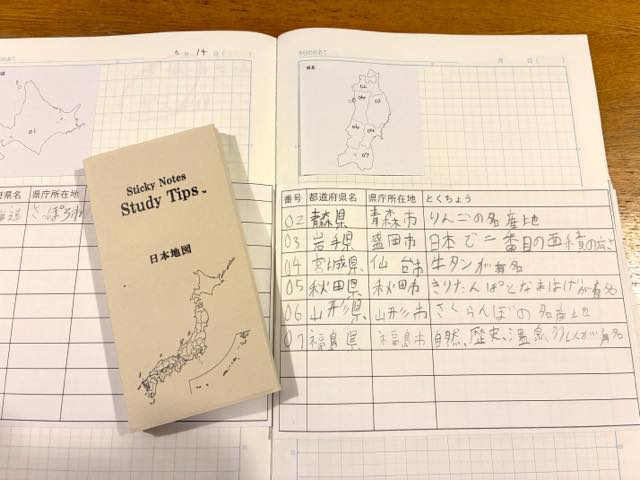 5月14日( )
01
県名 県庁所在地
さっぽろ市
Sticky Notes
Study Tips
日本地図
今日のめあて
月 日( )
東北
02
05
03
06
04
07
番号 都道府県名 県庁所在地 とくちょう
02 青森県 青森市 りんごの名産地
03 岩手県 盛岡市 日本で二番目の面積の広さ
04 宮城県 仙台市 牛タンが有名
05 秋田県 秋田市 きりたんぽとなまはげが有名
06 山形県 山形市 さくらんぼの名産地
07 福島県 福島市 自然、歴史、温泉、